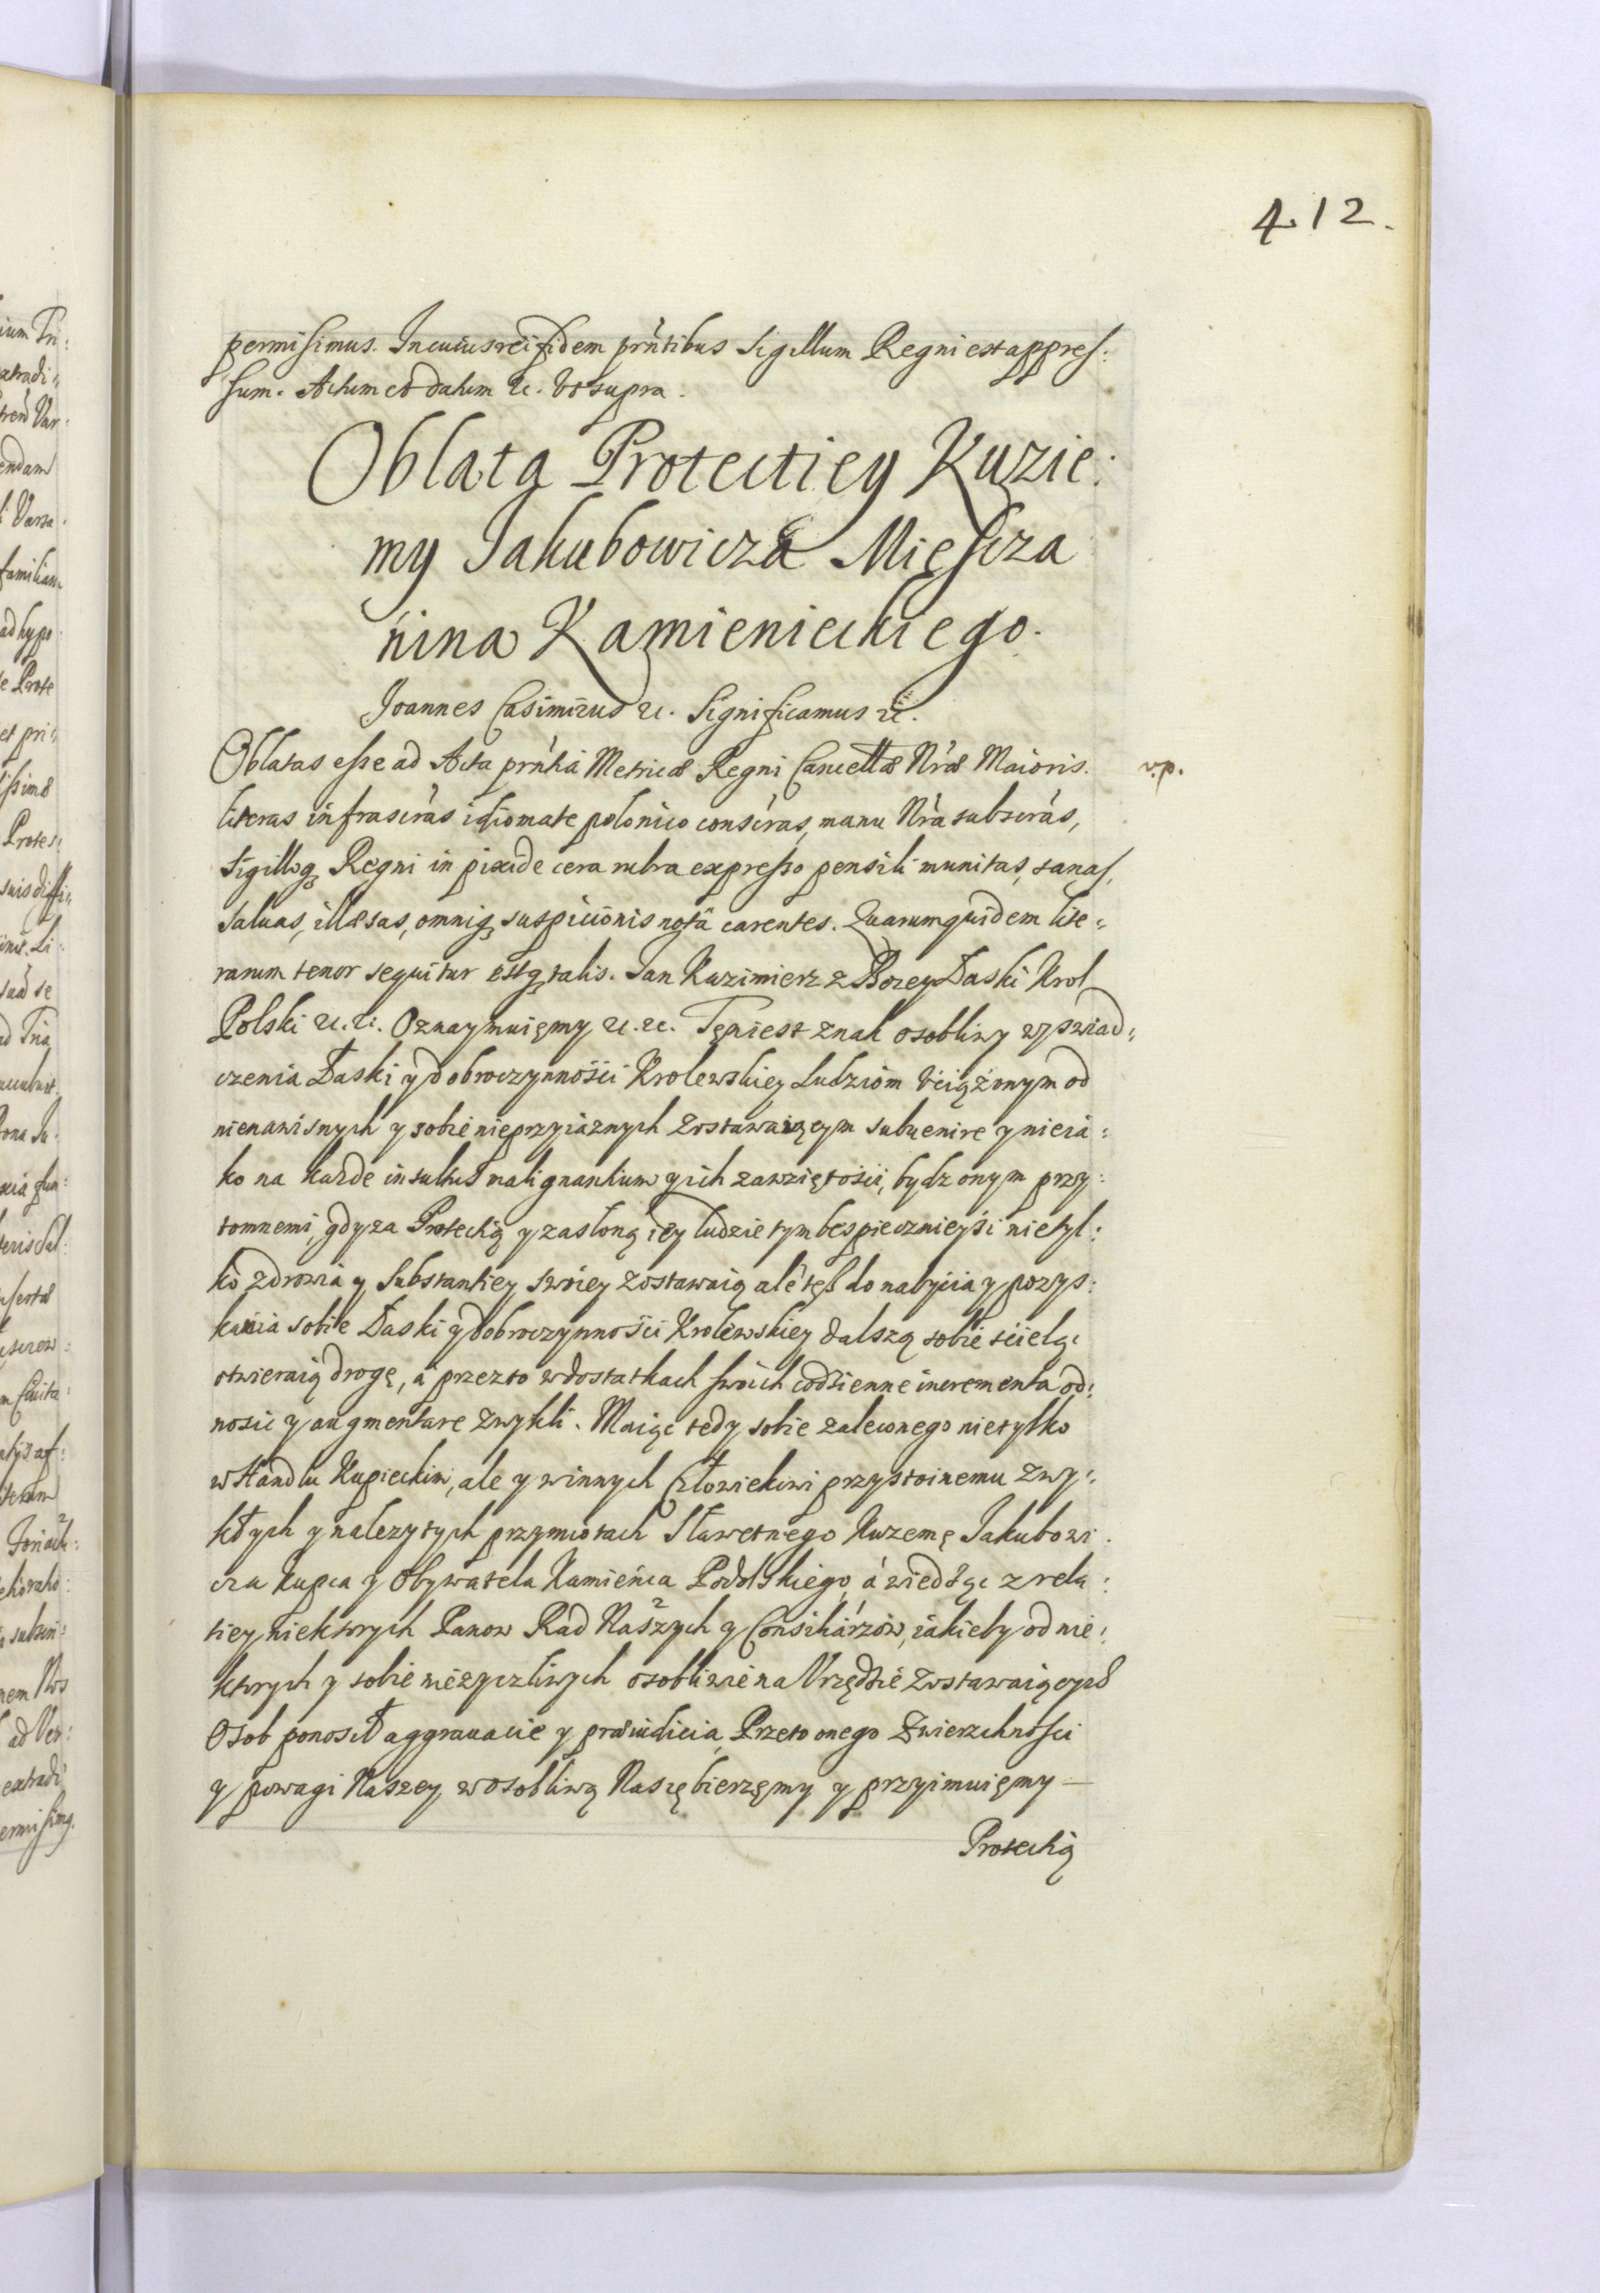 412.
permisimus. In cuius rei fidem prntibus Sigillum Regni est appres:
sum. Actum et datum etc. Vt supra.
Oblata Protectiey Kuzie:
my Jakubowicza Mięscza
nina Kamienieckiego.
Joannes Casimirus etc. Significamus etc.
Oblatas esse ad Acta prntia Metricæ Regni Cancellæ Nræ Maioris. v.p.
literas infrascras idiomate polonico conscras, manu Nra subscras,
Sigilloq Regni in pixide cera rubra expresso pensili munitas, sanas,
Saluas, illæsas, omniq suspicionis nota carentes. Quarum quidem lite:
rarum tenor sequitur estq talis. Jan Kazimierz z Bozey Łaski Krol
Polski etc. etc. Oznaymuięmy etc. etc. Tęn iest znak osobliwy wyswiad:
czenia Łaski y dobroczynności Krolewskiey Ludziom Vciążonym od
nienawisnych y sobie nieprzyiaznych zostawaiącym subuenire y nieia:
ko na kazde insultus malignantium y ich zawziętości, bydz onym przy:
tomnemi, gdy za Protectią y zasloną iey ludzie tym bespiecznieyśi nietyl:
ko zdrowia y Substantiey swoiey zostawaią ale tęsz do nabycia y pozys:
kania sobie Łaski y dobroczynności Krolewskiey dalszą sobie ściełą:
otwieraią drogę, á przez to w dostatkach swoich codzienne incrementa od:
nosic y augmentare zwykli. Maiąc tedy sobie zaleconego nietylko
w Handlu Kupieckim, ale y w innych Człowiekowi przystoinemu zwy:
kłych y nalezytych przymiotach Sławetnego Kuzemę Jakubowi:
cza Kupca y Obywatela Kamieńca Podolskiego, á wiedząc z rela:
tiey niektorych Panow Rad Naszych y Consiliárzow, iakieby od nie:
ktorych y sobie nieżyczliwych osobliwie na Vrzędzie zostawaiących
Osob ponosił aggrauacie y præiudicia, Przeto onego Zwierzchności
y powagi Naszey w osobliwą Na się bierzęmy y przyimuięmy —
Protectią